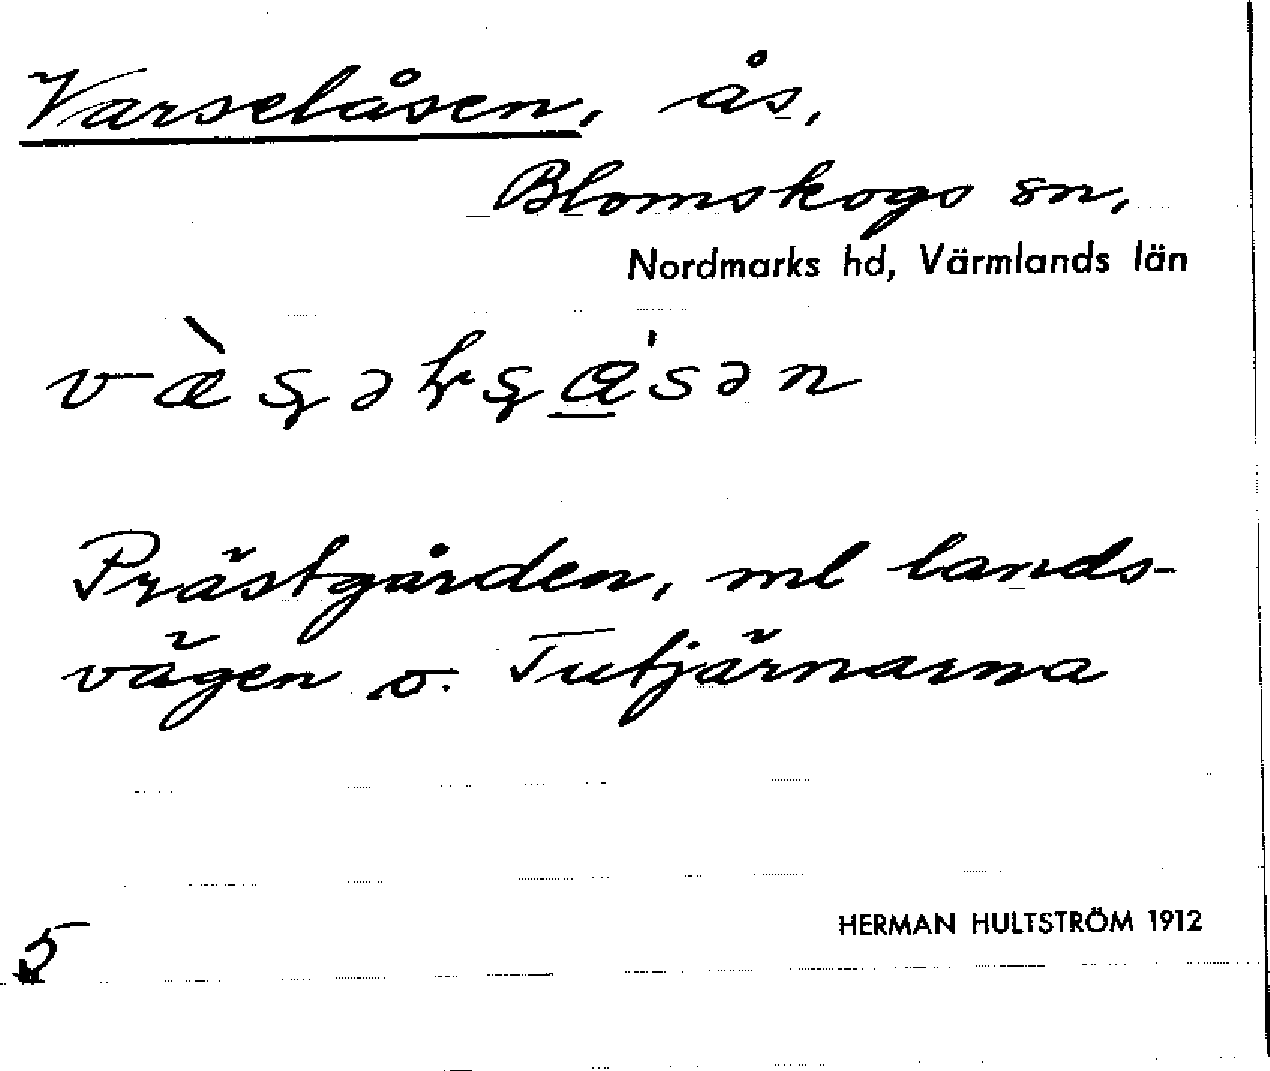 Varselåsen, ås,
Blomskogs sn,
Nordmarks hd, Värmlands län
Prästgården, ml lands-
vägen o. Tutjärnarna
HERMAN HULTSTRÖM 1912
5